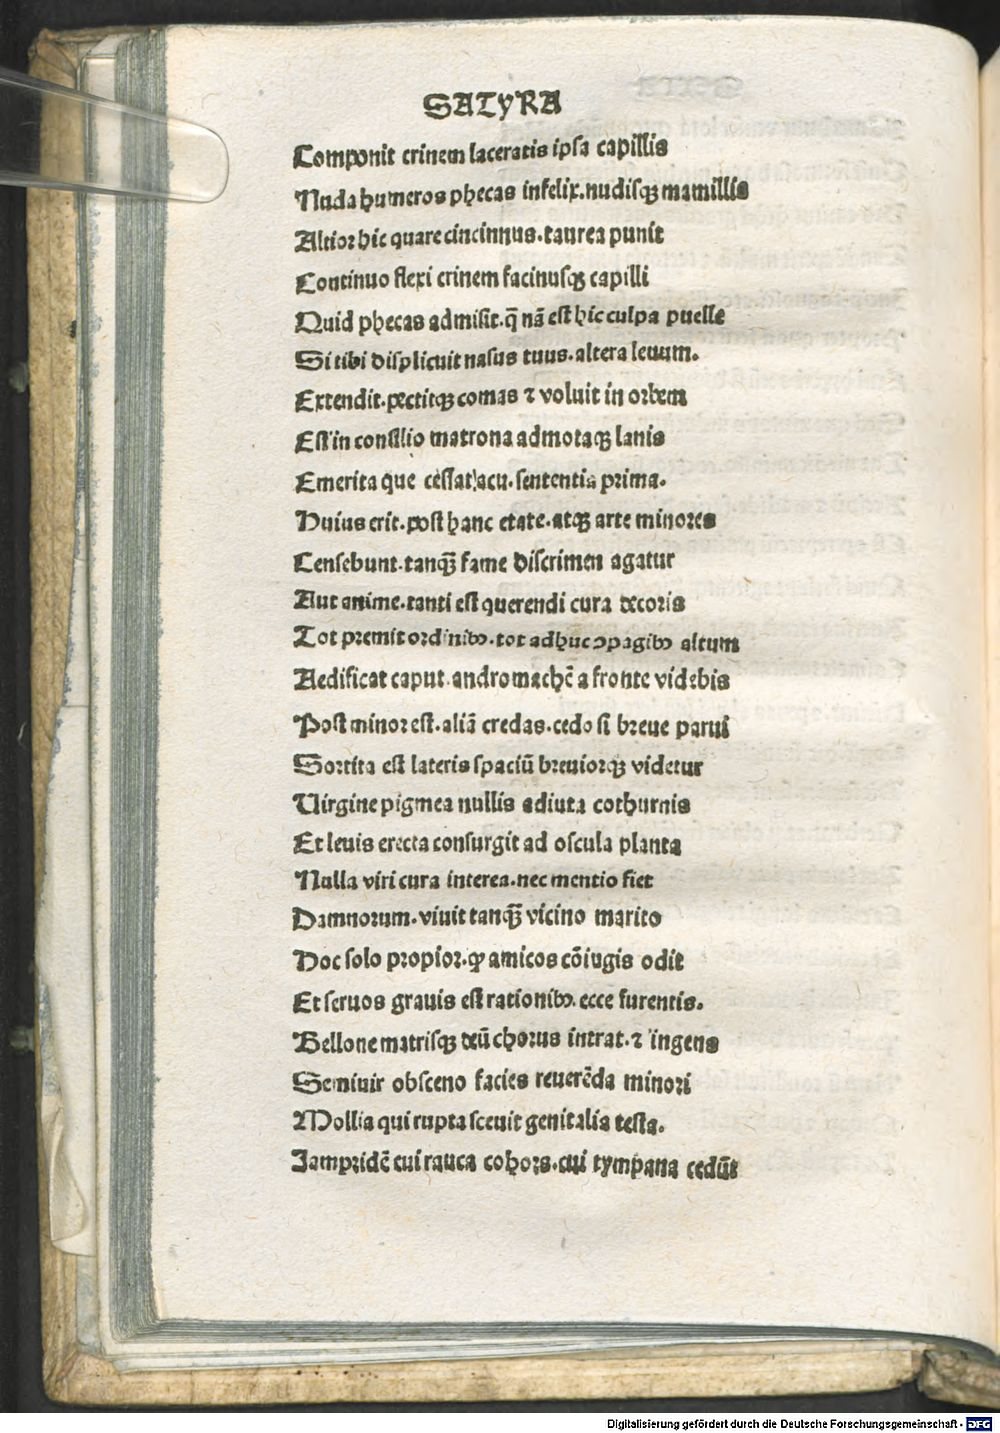 SATYRA
Componit crinem laceratis ipsa capillis
Nuda humeros phecas infelix.nudisqꝫ mamillis
Altior hic quare cincinnus.taurea punit
Continuo flexi crinem facinusqꝫ capilli
Quid phecas admisit.q̄ nā est hic culpa puelle
Si tibi displicuit nasus tuus.altera leuum.
Extendit.pectitqꝫ comas ⁊ voluit in orbem
Est in consilio matrona admotaqꝫ lanis
Emerita que cessat acu.sententia prima.
Huius erit.post hanc etate.atqꝫ arte minores
Censebunt.tanqꝫ̄ fame discrimen agatur
Aut anime.tanti est querendi cura decoris
Tot premit ordinibꝰ.tot adhuc ꝯpagibꝰ altum
Aedificat caput.andromachē a fronte videbis
Post minor est.aliā credas.cedo si breue parui
Sortita est lateris spaciū breuiorqꝫ videtur
Uirgine pigmea nullis adiuta cothurnis
Et leuis erecta consurgit ad oscula planta
Nulla viri cura interea.nec mentio fiet
Damnorum.viuit tanqꝫ̄ vicino marito
Hoc solo propior.ꝙ amicos cōiugis odit
Et seruos grauis est rationibꝰ.ecce furentis.
Bellone matrisqꝫ deū chorus intrat.⁊ ingens
Semiuir obsceno facies reuerēda minori
Mollia qui rupta sceuit genitalia testa.
Jampridē cui rauca cohors.cui tympana cedūt
Digitalisierung gefördert durch die Deutsche Forschungsgemeinschaft - DFG